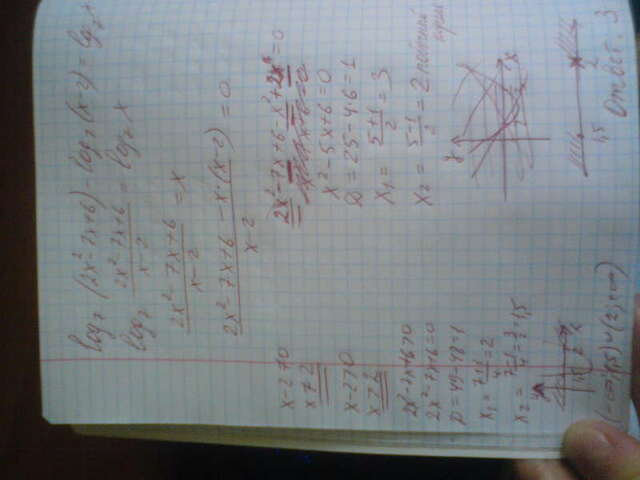 log₇(2x²-7x+6)-log₇(x-2)=log₇x
log₇ (2x²-7x+6)/(x-2) = log₇x
(2x²-7x+6)/(x-2) = x
(2x²-7x+6-x·(x-2))/(x-2) = 0
2x²-7x+6-x²+2x=0
x²-5x+6=0
D=25-4·6=1
x₁= (5+1)/2 = 3
x₂= (5-1)/2 = 2
y
x
1,5
2
Ответ: 3
x-2≠0
x≠2
x-2>0
x>2
2x²-7x+6>0
2x²-7x+6=0
D=49-48=1
x₁= (7+1)/4 =2
x₂= (7-1)/4 = 1,5
(-∞;1,5)∪(2;+∞)